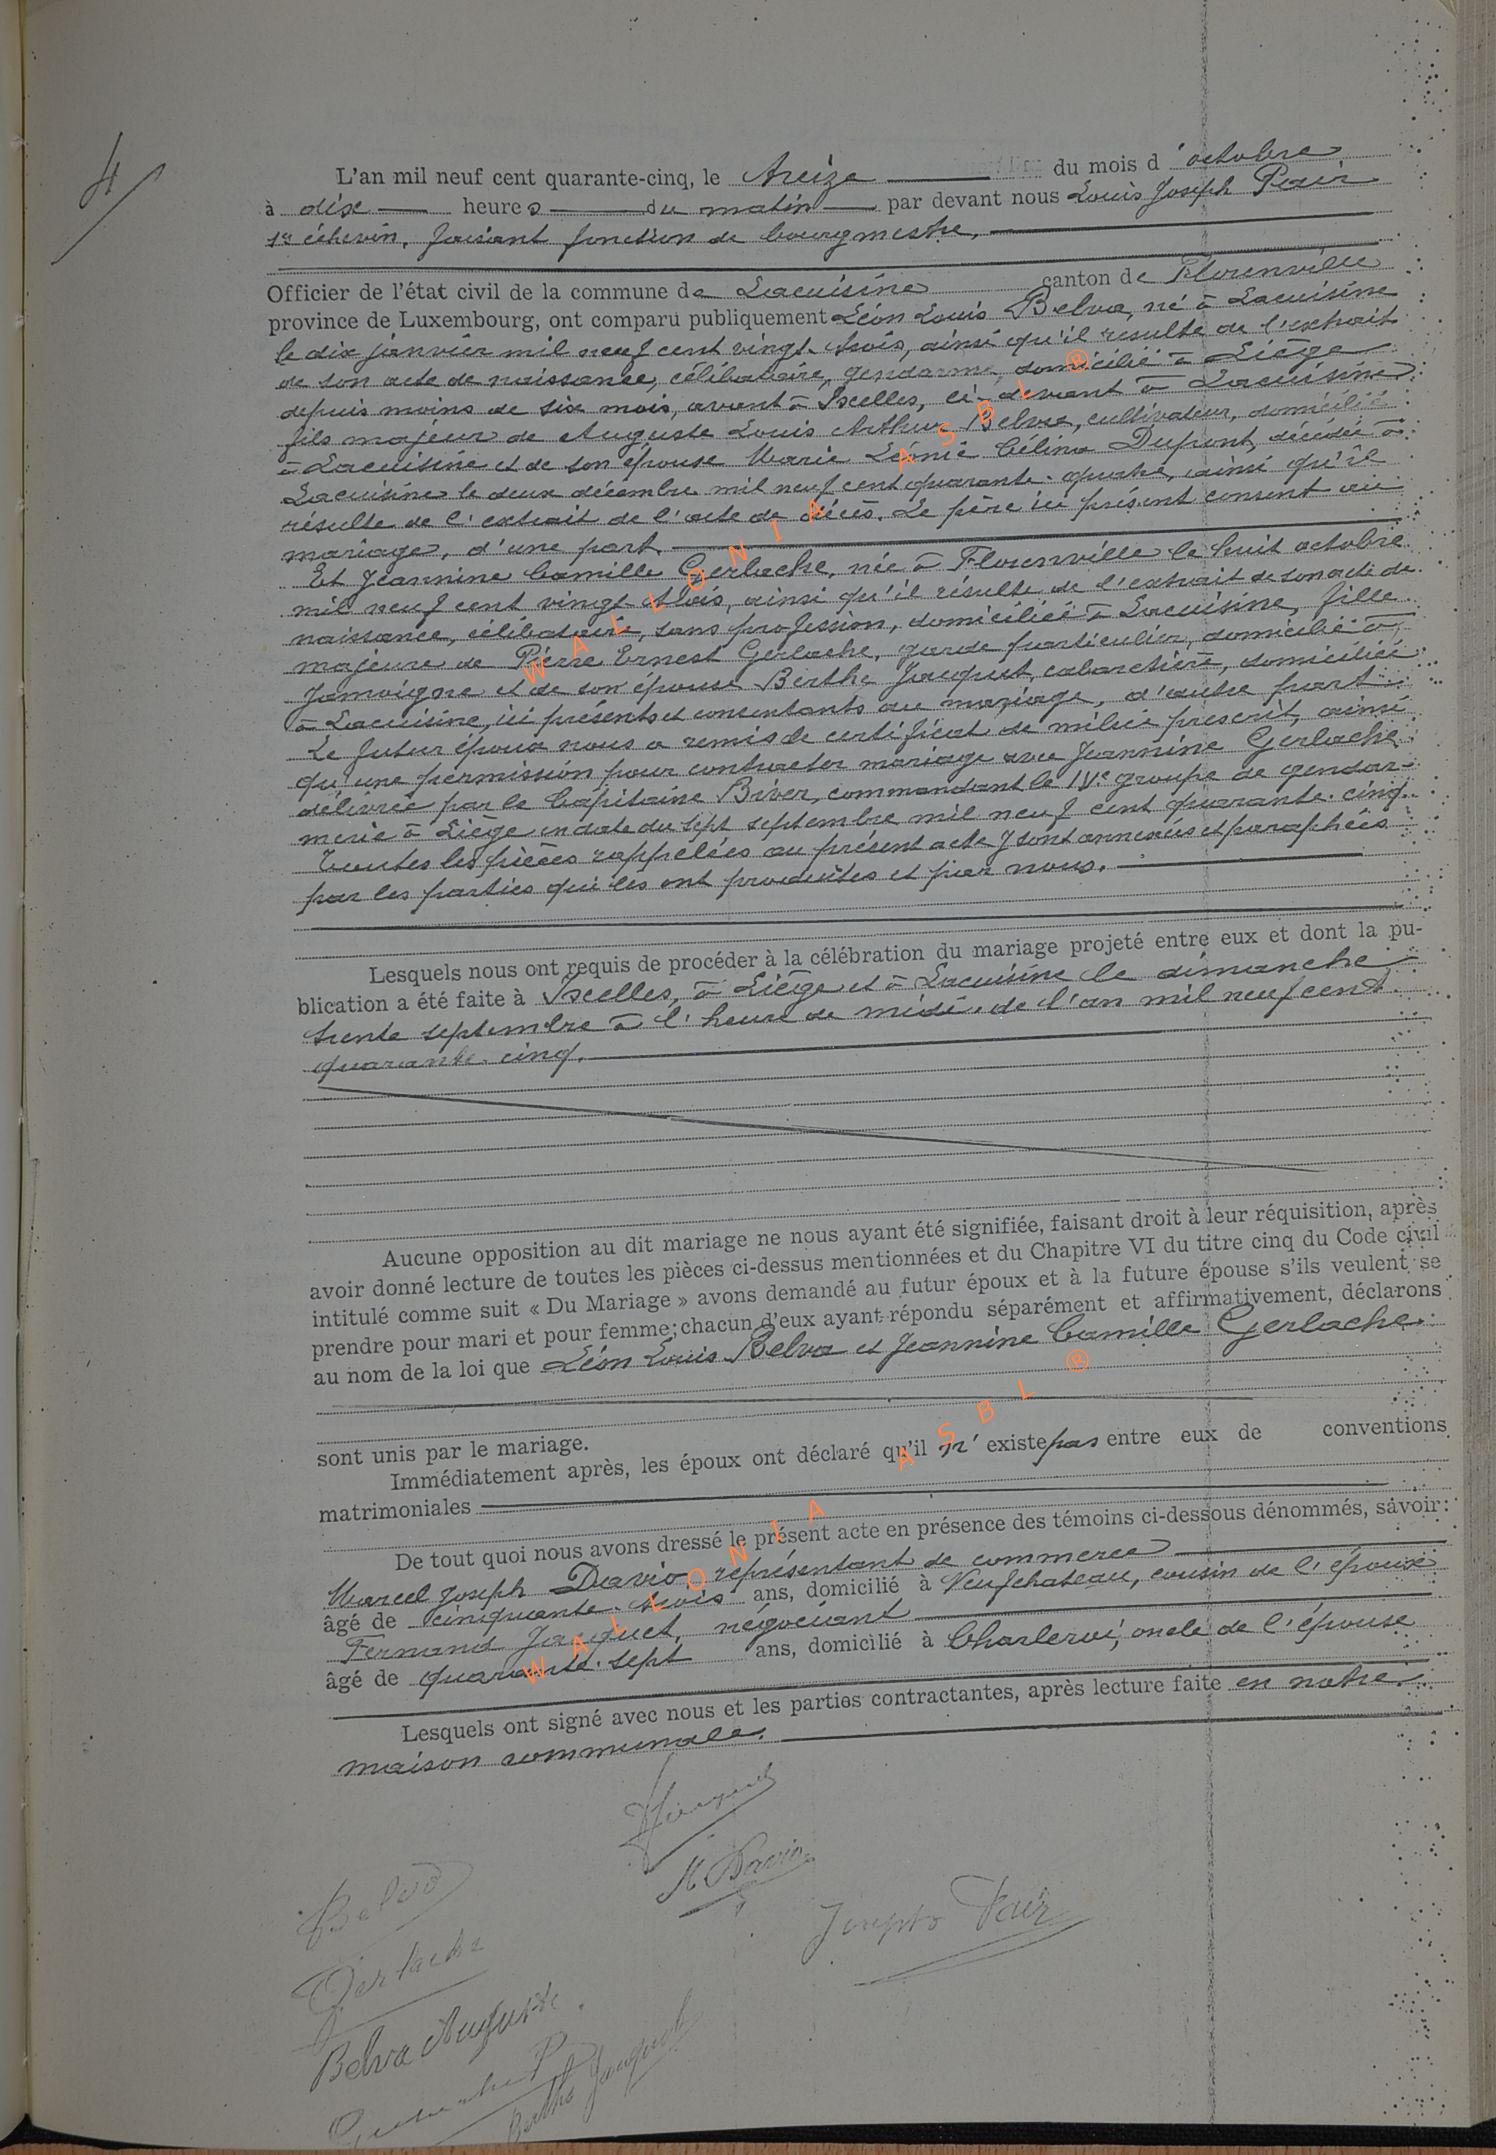 4
L'an mil neuf cent quarante-cinq, le treize du mois d'octobre
à dix heures du matin par devant nous Louis Joseph Pair
1er échevin, faisant fonction de bourgmestre,
Officier de l'état civil de la commune de Lacuisine canton de Florenville
province de Luxembourg, ont comparu publiquement Léon Louis Belva, né à Lacuisine
le dix janvier mil neuf cent vingt-trois, ainsi qu'il résulte de l'extrait
de son acte de naissance, célibataire, gendarme, domicilié à Liège
depuis moins de six mois, avant à Ixelles, ci-devant à Lacuisine
fils majeur de Auguste Louis Arthur Belva, cultivateur, domicilié
à Lacuisine et de son épouse Marie Léonie Célina Dupont, décédée à
Lacuisine le deux décembre mil neuf cent quarante-quatre, ainsi qu'il
résulte de l'extrait de l'acte de décès. Le père ici présent consent au
mariage, d'une part.
Et Jeannine Camille Gerlache, née à Florenville le huit octobre
mil neuf cent vingt-trois, ainsi qu'il résulte de l'extrait de son acte de
naissance, célibataire, sans profession, domiciliée à Lacuisine, fille
majeure de Pierre Ernest Gerlache, garde particulier, domicilié à
Jamoigne et de son épouse Berthe Jacquet, cabaretière, domiciliée
à Lacuisine, ici présents et consentants au mariage, d'autre part.
Le futur époux nous a remis le certificat de milice prescrit, ainsi
qu'une permission pour contracter mariage avec Jeannine Gerlache
délivrée par le Capitaine Biver, commandant le IVe groupe de gendar-
merie à Liège en date du sept septembre mil neuf cent quarante-cinq.
Toutes les pièces rappelées au présent acte y sont annexées et paraphées
par les parties qui les ont produites et par nous.
Lesquels nous ont requis de procéder à la célébration du mariage projeté entre eux et dont la pu-
blication a été faite à Ixelles, à Liège et à Lacuisine le dimanche
trente septembre à l'heure de midi de l'an mil neuf cent
quarante-cinq.
Aucune opposition au dit mariage ne nous ayant été signifiée, faisant droit à leur réquisition, après
avoir donné lecture de toutes les pièces ci-dessus mentionnées et du Chapitre VI du titre cinq du Code civil
intitulé comme suit « Du Mariage » avons demandé au futur époux et à la future épouse s'ils veulent se
prendre pour mari et pour femme; chacun d'eux ayant répondu séparément et affirmativement, déclarons
au nom de la loi que Léon Louis Belva et Jeannine Camille Gerlache
sont unis par le mariage.
Immédiatement après, les époux ont déclaré qu'il n'existe pas entre eux de conventions
matrimoniales
De tout quoi nous avons dressé le présent acte en présence des témoins ci-dessous dénommés, savoir:
Marcel Joseph Davio représentant de commerce
âgé de cinquante-trois ans, domicilié à Neufchateau, cousin de l'époux
Fernand Jacquet, négociant
âgé de quarante-sept ans, domicilié à Charleroi, oncle de l'épouse
Lesquels ont signé avec nous et les parties contractantes, après lecture faite en notre
maison communale.
Jacquet
M Davio
Belva
Joseph Pair
Gerlache
Belva Auguste
Gerlache P
Berthe Jacquet
WALLONIA ASBL ®
WALLONIA ASBL ®